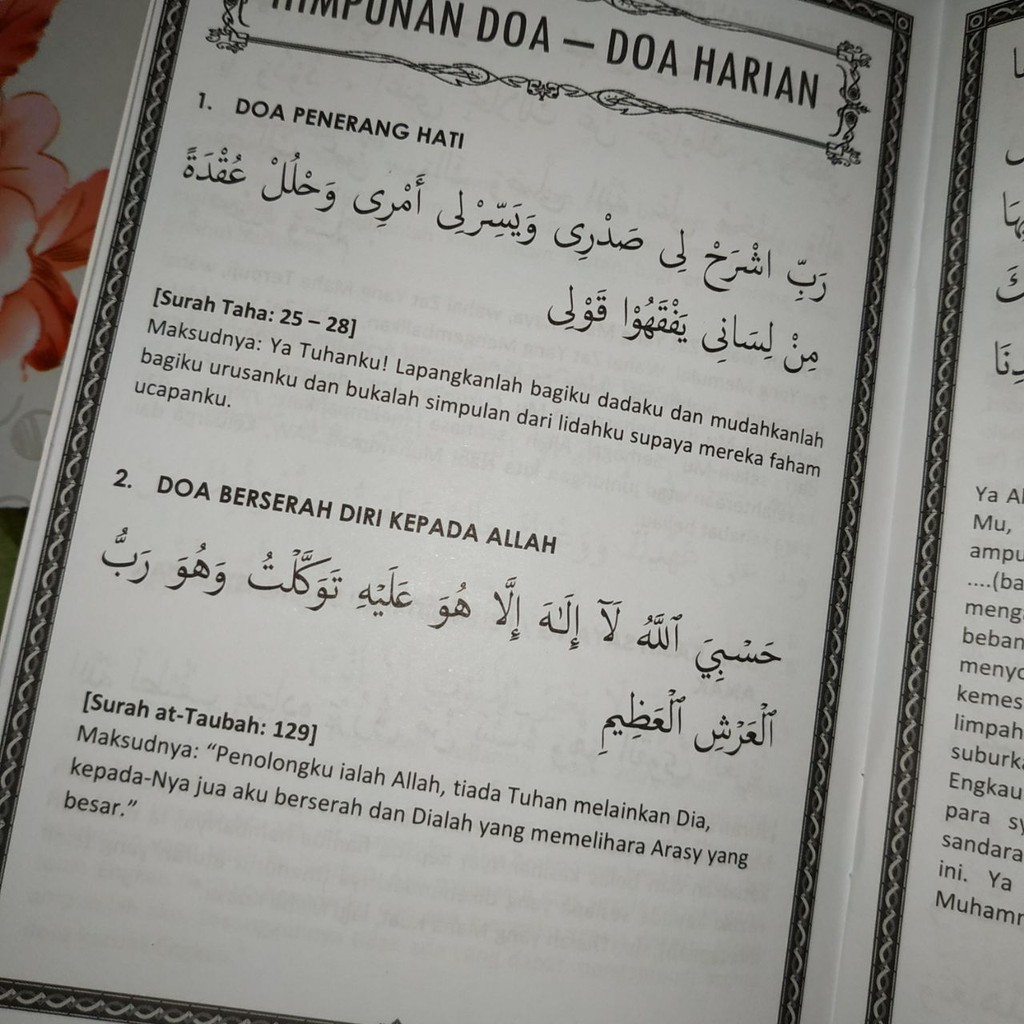 HIMPUNAN DOA – DOA HARIAN
1. DOA PENERANG HATI
رَبِّ اشْرَحْ لِى صَدْرِى وَيَسِّرْلِى أَمْرِى وَحْلُلْ عُقْدَةً
مِنْ لِسَانِى يَفْقَهُوْا قَوْلِى
[Surah Taha: 25 – 28]
Maksudnya: Ya Tuhanku! Lapangkanlah bagiku dadaku dan mudahkanlah
bagiku urusanku dan bukalah simpulan dari lidahku supaya mereka faham
ucapanku.
2. DOA BERSERAH DIRI KEPADA ALLAH
حَسْبِيَ ٱللَّهُ لَآ إِلَـٰهَ إِلَّا هُوَ عَلَيْهِ تَوَكَّلْتُ وَهُوَ رَبُّ
ٱلْعَرْشِ ٱلْعَظِيمِ
[Surah at-Taubah: 129]
Maksudnya: “Penolongku ialah Allah, tiada Tuhan melainkan Dia,
kepada-Nya jua aku berserah dan Dialah yang memelihara Arasy yang
besar.”
Ya
Mu,
....(ba
beban
limpah
Engkau
para
ini. Ya